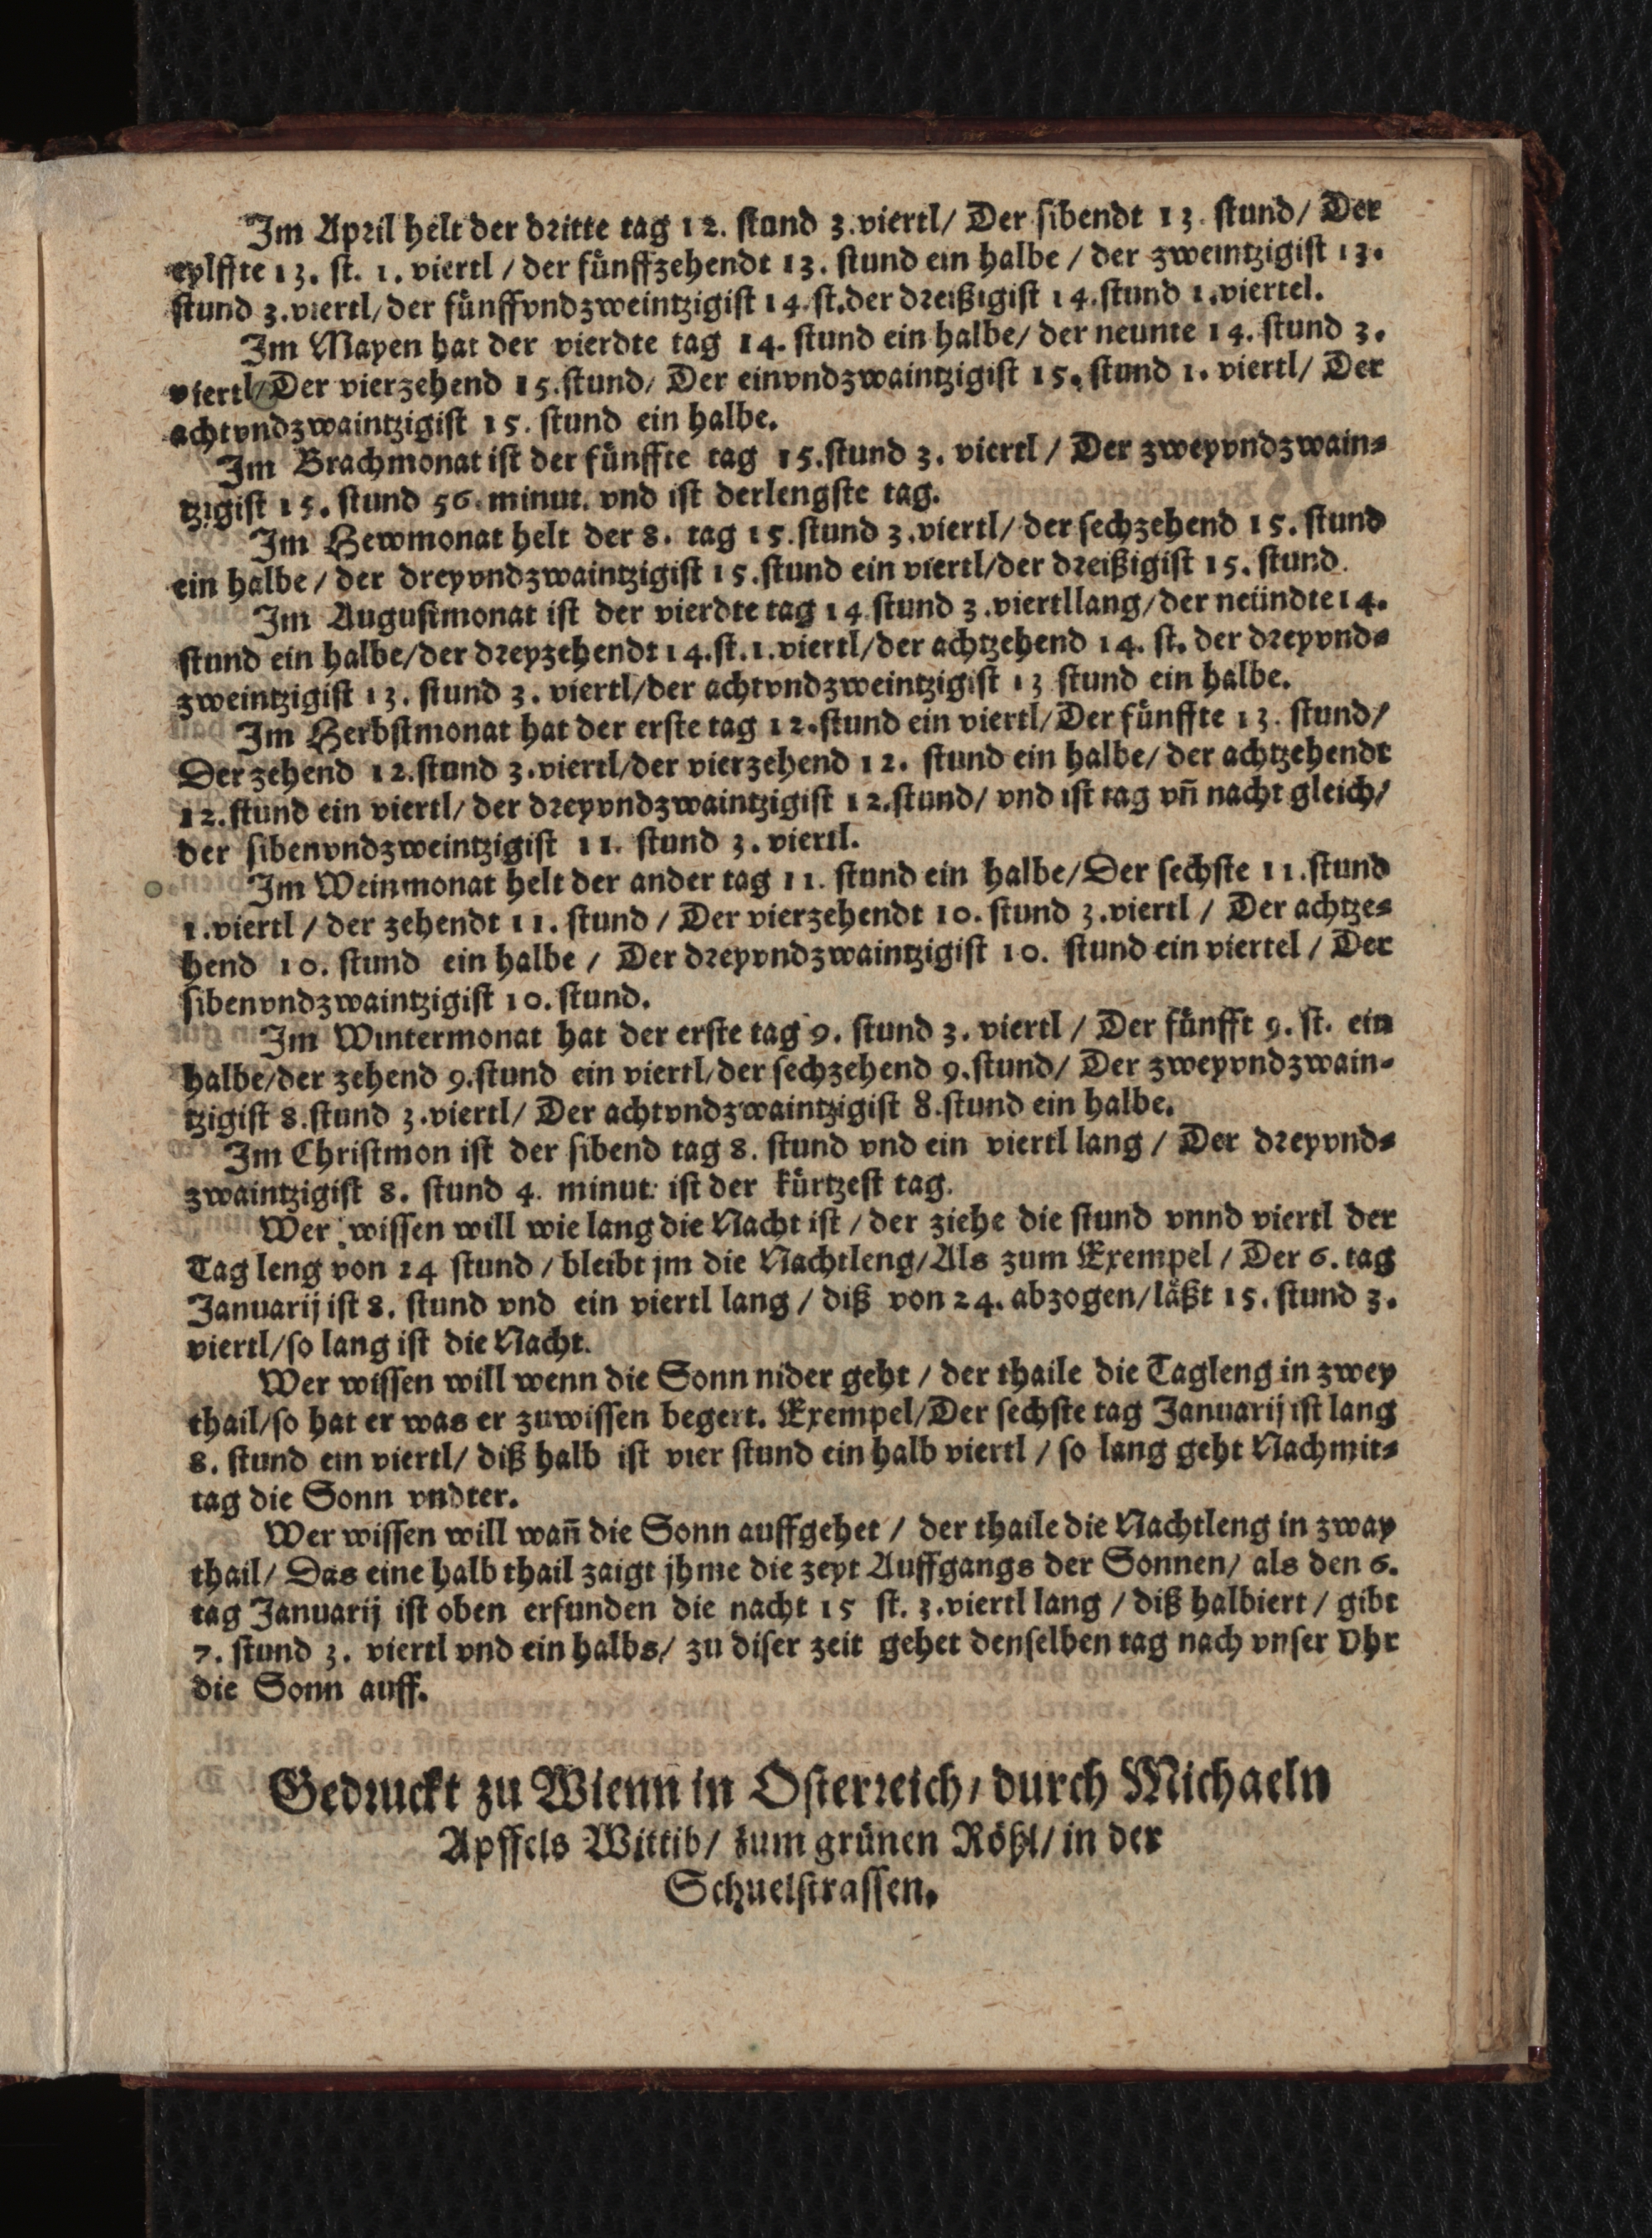 Im April helt der dritte tag 12. stund 3. viertl/ Der sibendt 13. stund/ Der
eylffte 13. st. 1. viertl / der fünffzehendt 13. stund ein halbe / der zweintzigist 13.
stund 3. viertl/ der fünffvndzweintzigist 14. st. der dreißigist 14. stund 1. viertel.
Im Mayen hat der vierdte tag 14. stund ein halbe/ der neunte 14. stund 3.
viertl/ Der vierzehend 15. stund/ Der einvndzwaintzigist 15. stund 1. viertl/ Der
achtvndzwaintzigist 15. stund ein halbe.
Im Brachmonat ist der fünffte tag 15. stund 3. viertl / Der zweyvndzwain-
tzigist 15. stund 56. minut. vnd ist derlengste tag.
Im Hewmonat helt der 8. tag 15. stund 3. viertl/ der sechzehend 15. stund
ein halbe / der dreyvndzwaintzigist 15. stund ein viertl/ der dreißigist 15. stund.
Im Augustmonat ist der vierdte tag 14. stund 3. viertllang/ der neündte 14.
stund ein halbe/ der dreyzehendt 14. st. 1. viertl/ der achtzehend 14. st. der dreyvnd-
zweintzigist 13. stund 3. viertl/ der achtvndzweintzigist 13 stund ein halbe.
Im Herbstmonat hat der erste tag 12. stund ein viertl/ Der fünffte 13. stund/
Der zehend 12. stund 3. viertl/ der vierzehend 12. stund ein halbe/ der achtzehendt
12. stund ein viertl/ der dreyvndzwaintzigist 12. stund/ vnd ist tag vn̄ nacht gleich/
der sibenvndzweintzigist 11. stund 3. viertl.
Im Weinmonat helt der ander tag 11. stund ein halbe/ Der sechste 11. stund
1. viertl / der zehendt 11. stund / Der vierzehendt 10. stund 3. viertl / Der achtze-
hend 10. stund ein halbe / Der dreyvndzwaintzigist 10. stund ein viertel / Der
sibenvndzwaintzigist 10. stund.
Im Wintermonat hat der erste tag 9. stund 3. viertl / Der fünfft 9. st. ein
halbe/ der zehend 9. stund ein viertl/ der sechzehend 9. stund/ Der zweyvndzwain-
tzigist 8. stund 3. viertl/ Der achtvndzwaintzigist 8. stund ein halbe.
Im Christmon ist der sibend tag 8. stund vnd ein viertl lang / Der dreyvnd-
zwaintzigist 8. stund 4. minut: ist der kürtzest tag.
Wer wissen will wie lang die Nacht ist / der ziehe die stund vnnd viertl der
Tag leng von 24 stund / bleibt jm die Nachtleng/ Als zum Exempel / Der 6. tag
Januarij ist 8. stund vnd ein viertl lang / diß von 24. abzogen/ läßt 15. stund 3.
viertl/ so lang ist die Nacht.
Wer wissen will wenn die Sonn nider geht / der thaile die Tagleng in zwey
thail/ so hat er was er zuwissen begert. Exempel/ Der sechste tag Januarij ist lang
8. stund ein viertl/ diß halb ist vier stund ein halb viertl / so lang geht Nachmit-
tag die Sonn vndter.
Wer wissen will wan̄ die Sonn auffgehet / der thaile die Nachtleng in zway
thail/ Das eine halb thail zaigt jhme die zeyt Auffgangs der Sonnen/ als den 6.
tag Januarij ist oben erfunden die nacht 15 st. 3. viertl lang / diß halbiert / gibt
7. stund 3. viertl vnd ein halbs/ zu diser zeit gehet denselben tag nach vnser Vhr
die Sonn auff.
Gedruckt zu Wienn in Osterreich/ durch Michaeln
Apffels Wittib/ zum grünen Rößl/ in der
Schuelstrassen.